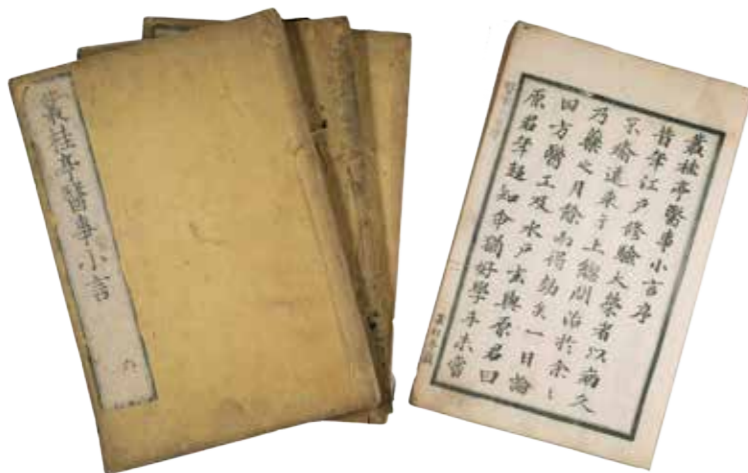 叢桂亭醫事小言
六
叢桂亭醫事小言序
昔年江戶修驗大榮者以病久
不瘉遠来于上總問治於余〻
乃藥之月餘而得効矣一日論
四方醫工及水戶玄與原君曰
原君年超知命猶好學手未嘗
叢桂亭藏